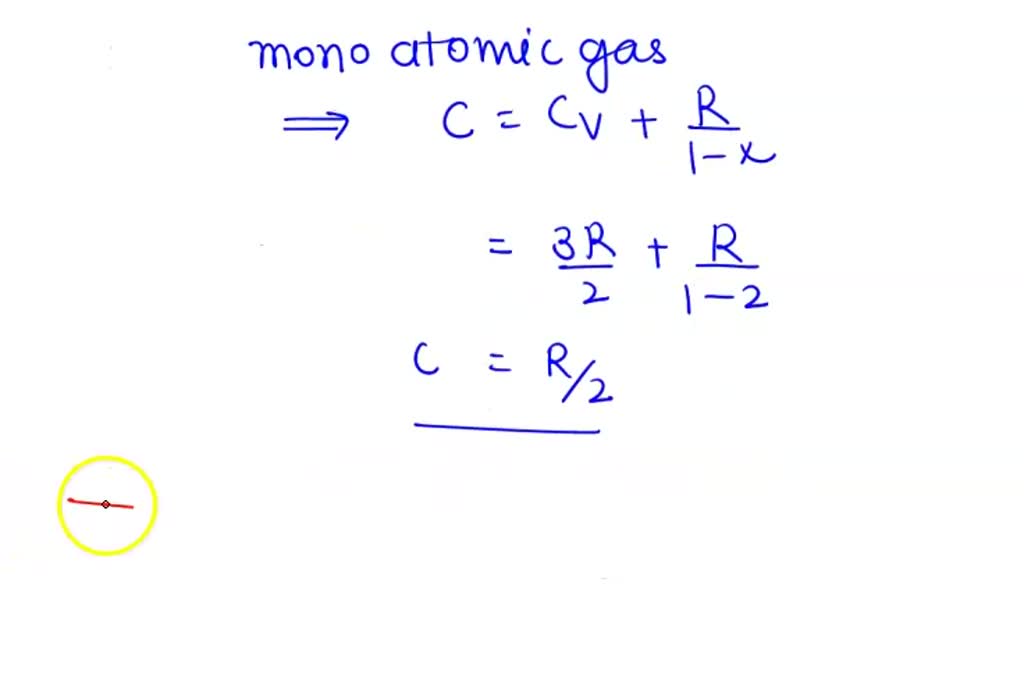 mono atomic gas
⟹ C = Cv + R/(1-x)
= 3R/2 + R/(1-2)
C = R/2